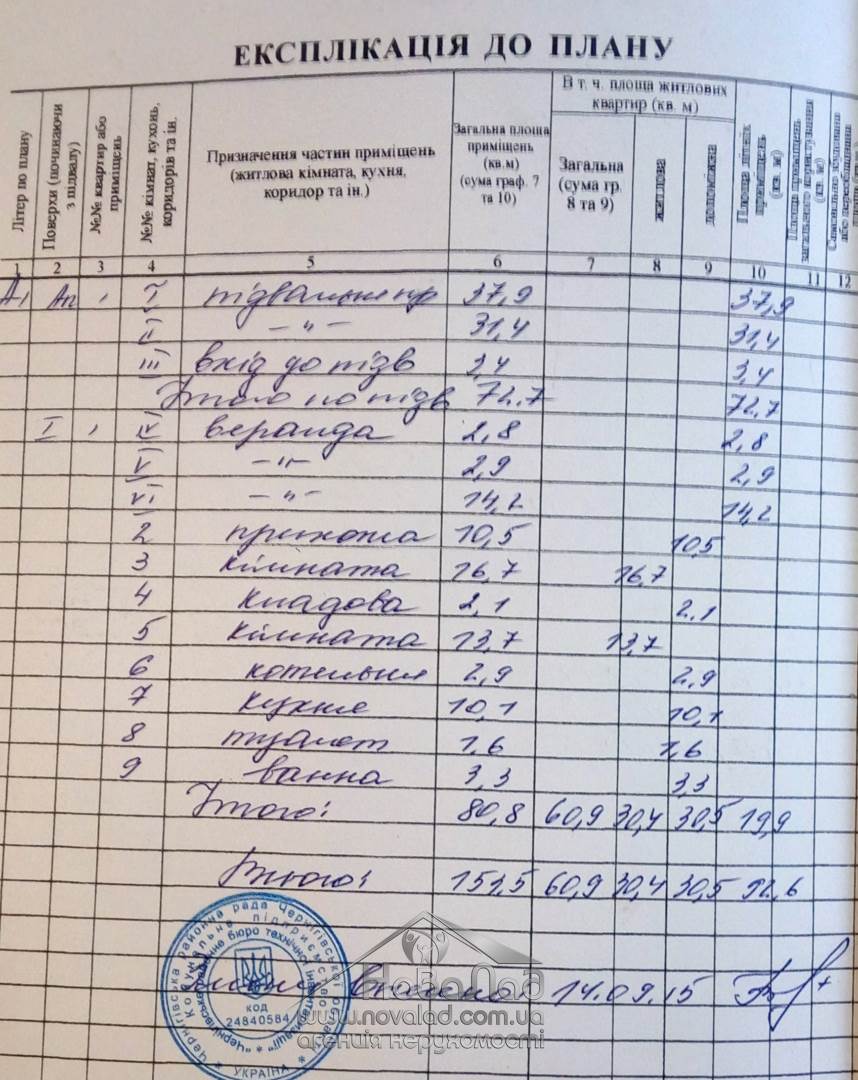 ЕКСПЛІКАЦІЯ ДО ПЛАНУ
Літер по плану
Поверхи (починаючи з підвалу)
№№ квартир або приміщень
№№ кімнат, кухонь, коридорів та ін.
Призначення частин приміщень (житлова кімната, кухня, коридор та ін.)
Загальна площа приміщень (кв.м) (сума граф. 7 та 10)
В т. ч. площа житлових квартир (кв. м)
Загальна (сума гр. 8 та 9)
житлова
допоміжна
Площа літніх приміщень (кв. м)
Площа приміщень загального користування (кв. м)
1 2 3 4 5 6 7 8 9 10 11 12
А1 Ап І підвальне пр 37,9 37,9
ІІ — " — 31,4 31,4
ІІІ вхід до підв 3,4 3,4
Ітого по підв 72.7 72.7
І ІV веранда 2,8 2,8
V — " — 2,9 2,9
VI — " — 14,2 14,2
2 прихожа 10,5 10,5
3 кімната 16,7 16,7
4 кладова 2,1 2,1
5 кімната 13,7 13,7
6 котельня 2,9 2,9
7 кухня 10,1 10,1
8 туалет 1,6 1,6
9 ванна 3,3 3,3
Ітого: 80,8 60,9 30,4 30,5 19,9
Всього: 153,5 60,9 30,4 30,5 92,6
14.09.15
НоваЛад
www.novalad.com.ua
агенція нерухомості
Чернігівська районна рада Чернігівської області
Комунальне підприємство
бюро технічної інвентаризації
код
24840584
УКРАЇНА